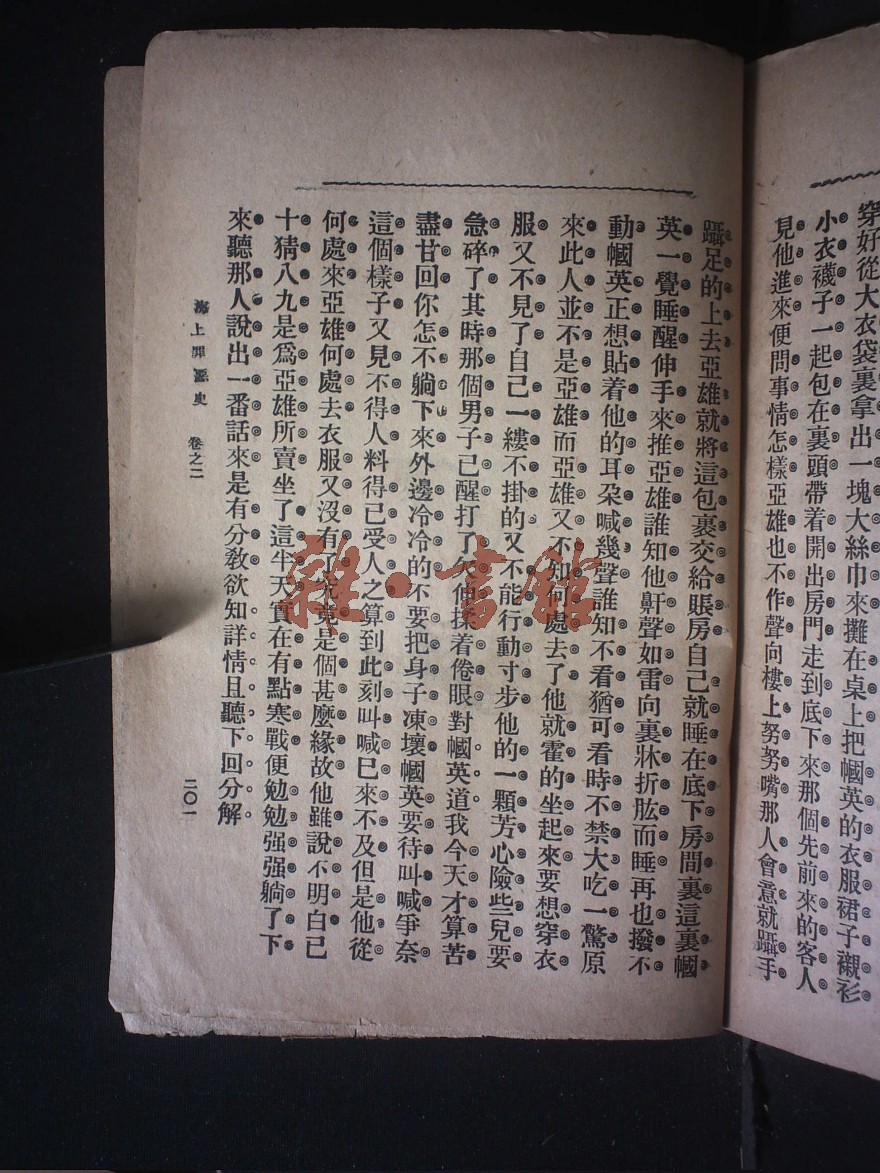 穿好從大衣袋裏拿出一塊大絲巾來攤在桌上把幗英的衣服裙子襯衫
小衣襪子一起包在裏頭帶着開出房門走到底下來那個先前來的客人
見他進來便問事情怎樣亞雄也不作聲向樓上努努嘴那人會意就躡手
躡足的上去亞雄就將這包裹交給賬房自己就睡在底下房間裏這裏幗
英一覺睡醒伸手來推亞雄誰知他鼾聲如雷向裏牀折肱而睡再也撥不
動幗英正想貼着他的耳朶喊幾聲誰知不看猶可看時不禁大吃一驚原
來此人並不是亞雄而亞雄又不知何處去了他就霍的坐起來要想穿衣
服又不見了自己一縷不掛的又不能行動寸步他的一顆芳心險些兒要
急碎了其時那個男子已醒打了欠伸揉着倦眼對幗英道我今天才算苦
盡甘回你怎不躺下來外邊冷冷的不要把身子凍壞幗英要待叫喊爭奈
這個樣子又見不得人料得已受人之算到此刻叫喊已來不及但是他從
何處來亞雄何處去衣服又沒有了究竟是個甚麼緣故他雖說不明白已
十猜八九是爲亞雄所賣坐了這半天實在有點寒戰便勉勉强强躺了下
來聽那人說出一番話來是有分敎欲知詳情且聽下回分解
海上罪惡史 卷之二
二〇一
雜·書館